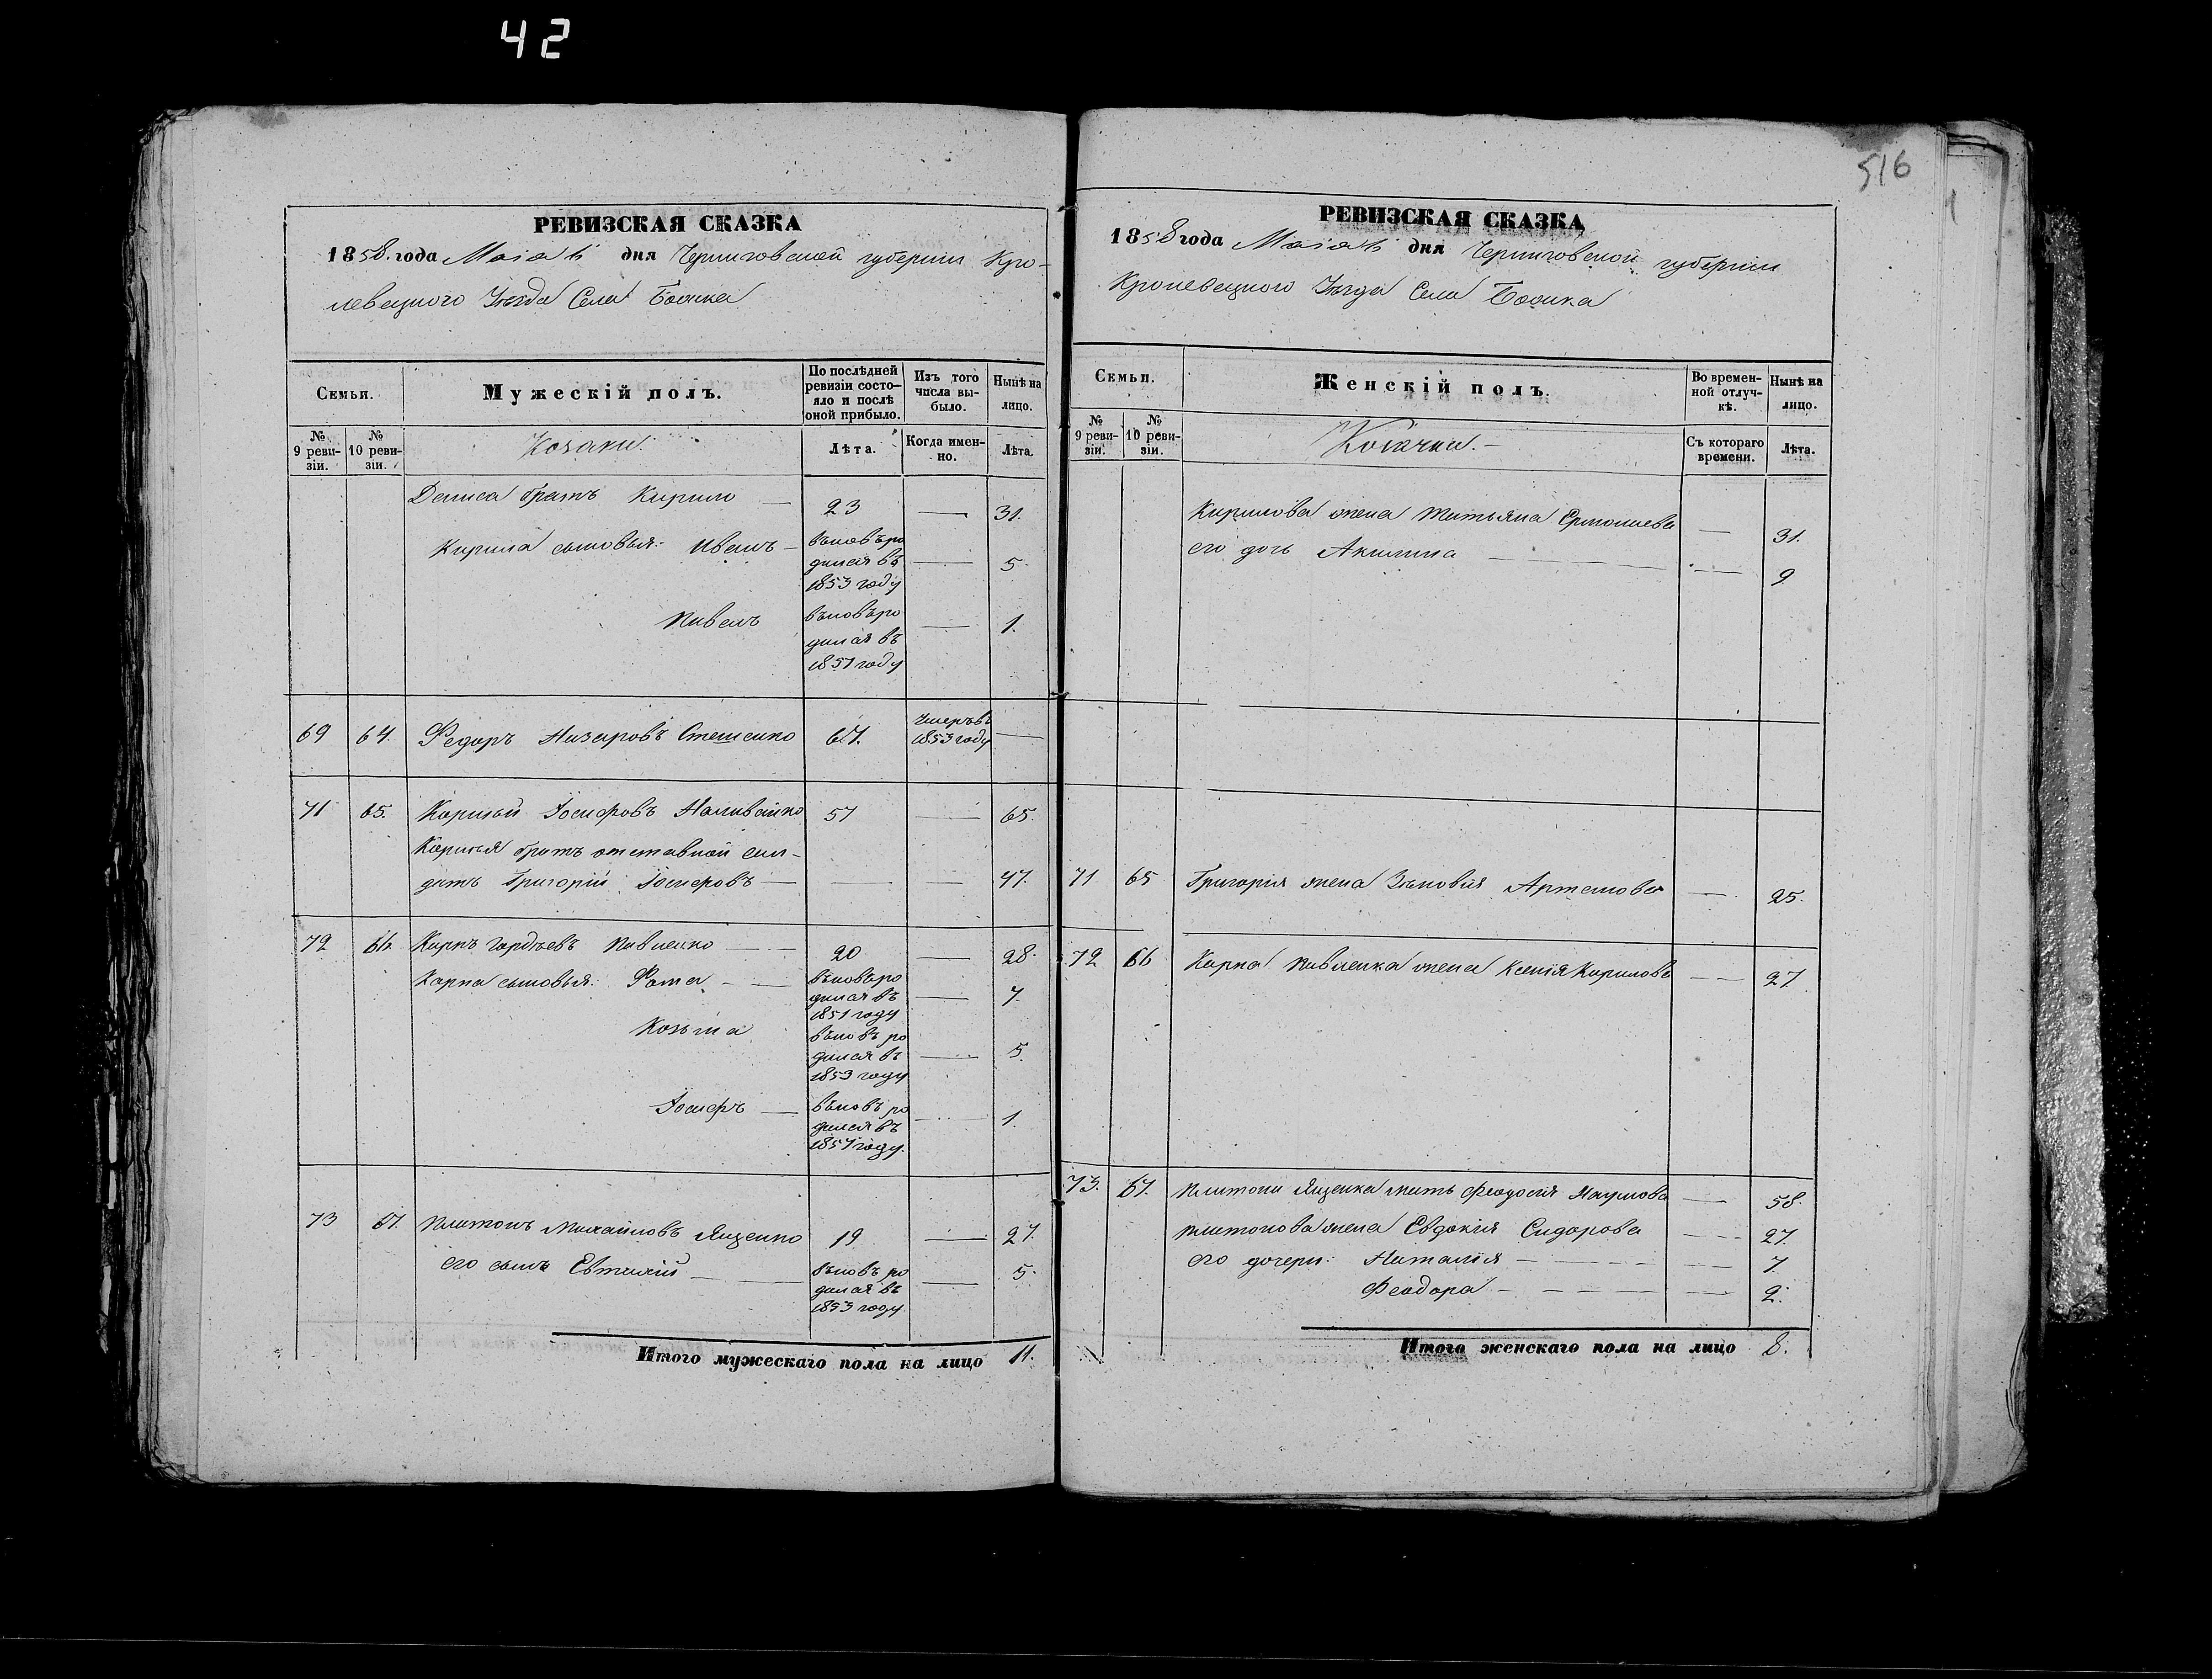 42
516
РЕВИЗСКАЯ СКАЗКА
1858 года Маія 6 дня Черниговской губерніи Кро-
левецкого Уѣзда Села
Семьи.
Мужескій полъ.
По послѣдней ревизіи состо-
яло и послѣ оной прибыло.
Изъ того числа вы-
было.
Нынѣ на лицо.
№ 9 реви-
зіи.
№ 10 реви-
зіи.
Козаки.
Лѣта.
Когда имен-
но.
Лѣта.
Дениса братъ Кирило — 23 — 31.
Кирила сыновья: Иванъ — вновь ро
дился въ — 5.
1853 году
Павелъ вновь ро
дился въ — 1.
1857 году
69 64. Федоръ Назаровъ Стешенко 67. умеръ въ
1853 году —
71 65. Корнѣй Іосифовъ Наливайко 57 — 65.
Корнѣя братъ отставной сол-
датъ Григорій Іосифовъ — — — 47.
72 66 Карпъ Гордѣевъ Павленко — 20 — 28.
Карпа сыновья: Фома — вновь ро
дился въ — 7.
1851 году
Козьма вновь ро
дился въ — 5.
1853 году
Іосифъ — вновь ро
дился въ — 1.
1857 году.
73 67. Платонъ Михайловъ Яценко 19 — 27.
его сынъ Евтихій — вновь ро — 5.
дился въ
1853 году
Итого мужескаго пола на лицо 11.
РЕВИЗСКАЯ СКАЗКА
1858 года Маія 6 дня Черниговской губерніи
Кролевецкого Уѣзда Села
Семьи.
Женскій полъ.
Во времен-
ной отлуч-
кѣ.
Нынѣ на лицо.
№ 9 реви-
зіи.
№ 10 реви-
зіи.
Козачки. —
Съ котораго времени.
Лѣта.
Кирилова жена Татьяна Ермолаева — 31.
его дочь Акилина — — 9
71 65 Григорія жена Зѣновія Артемова — 25.
72 66 Карпа Павленка жена Ксенія Кирилова — 27
73. 67. Платона Яценка мать Феодосія Наумова — 58.
Платонова жена Евдокія Сидорова — 27
его дочери: Наталія — — 7.
Феодора — — 2.
Итого женскаго пола на лицо 8.